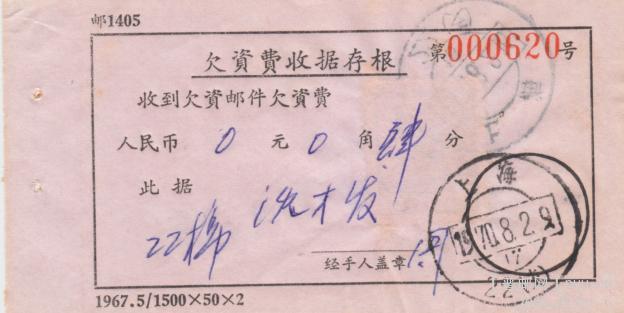 邮1405
欠資費收据存根
第000620号
收到欠資邮件欠資費
人民币 0 元 0 角 肆 分
此据
沈才发
22
经手人盖章
上海
1970.8.2.9
17
22
1967.5/1500×50×2